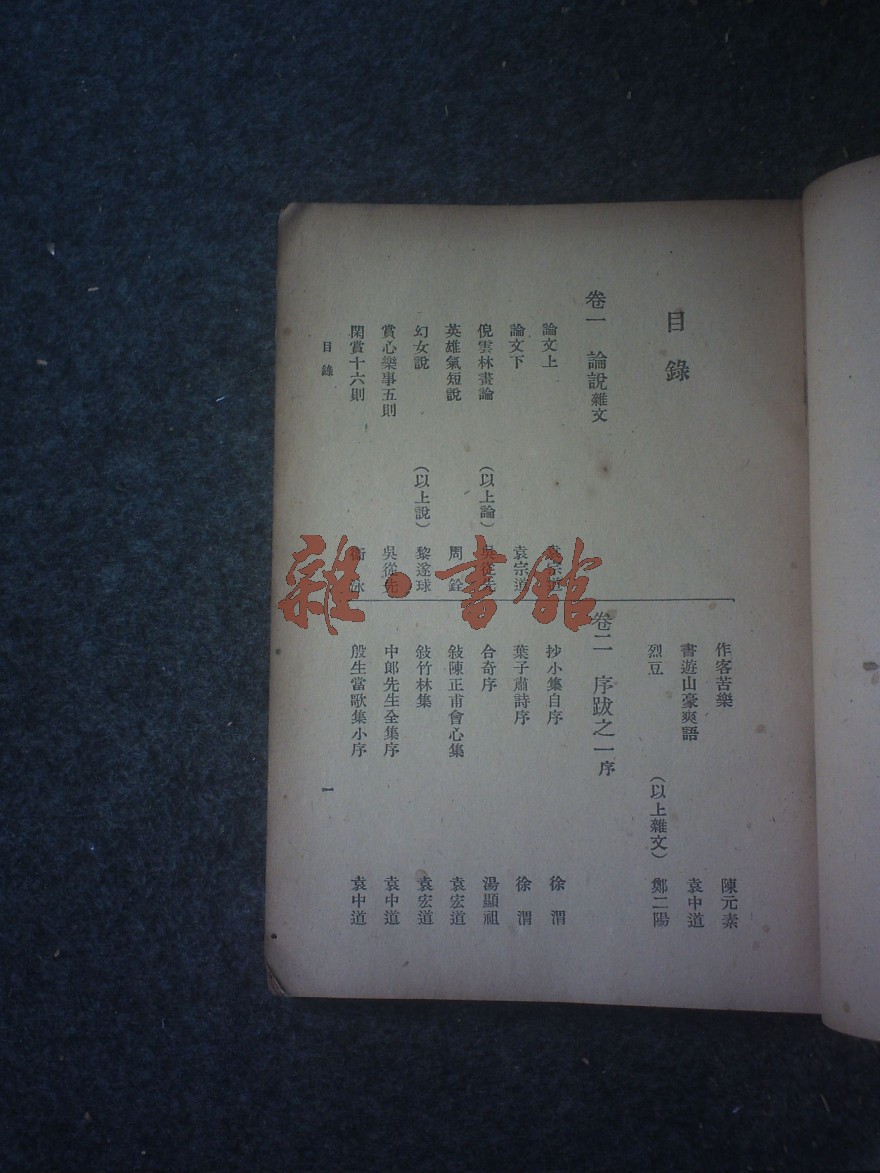 目錄
卷一 論說雜文
論文上 袁宗道
論文下 袁宗道
倪雲林畫論 (以上論) 吳從先
英雄氣短說 周銓
幻女說 (以上說) 黎遂球
賞心樂事五則 吳從先
閑賞十六則 衛泳
作客苦樂 陳元素
書遊山豪爽語 袁中道
烈豆 (以上雜文) 鄭二陽
卷二 序跋之一序
抄小集自序 徐渭
葉子肅詩序 徐渭
合奇序 湯顯祖
敍陳正甫會心集 袁宏道
敍竹林集 袁宏道
中郎先生全集序 袁中道
殷生當歌集小序 袁中道
目錄
一
雜·書館